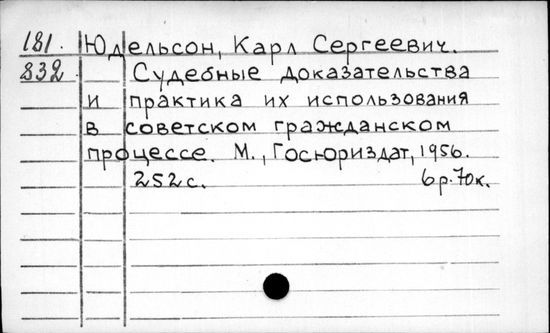 181. Юдельсон, Карл Сергеевич.
832 Судебные доказательства
и практика их использования
в советском гражданском
процессе. М., Госюриздат, 1956.
252 с. 6 р. 70 к.